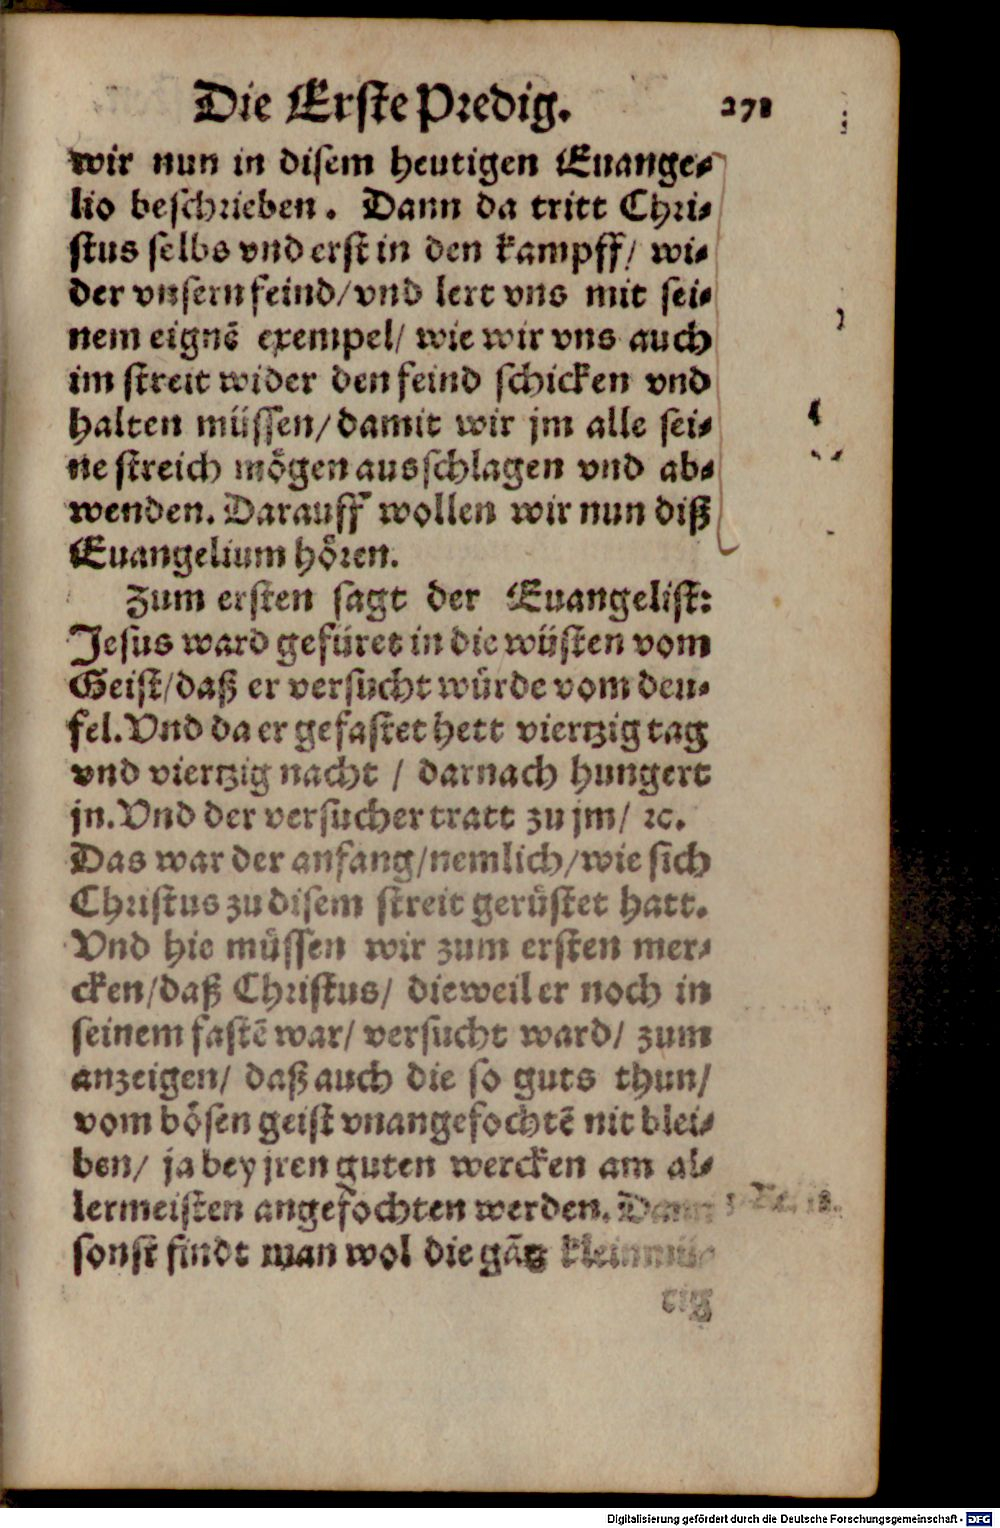 Die Erste Predig. 278
wir nun in disem heutigen Euange⸗
lio beschrieben. Dann da tritt Chri⸗
stus selbs vnd erst in den kampff/ wi⸗
der vnsern feind/ vnd lert vns mit sei⸗
nem eignē exempel/ wie wir vns auch
im streit wider den feind schicken vnd
halten müssen/ damit wir jm alle sei⸗
ne streich mögen ausschlagen vnd ab⸗
wenden. Darauff wollen wir nun diß
Euangelium hören.
Zum ersten sagt der Euangelist:
Jesus ward gefüret in die wüsten vom
Geist/ daß er versucht würde vom deu⸗
fel. Vnd da er gefastet hett viertzig tag
vnd viertzig nacht / darnach hungert
jn. Vnd der versucher tratt zu jm/ ꝛc.
Das war der anfang/ nemlich/ wie sich
Christus zu disem streit gerüstet hatt.
Vnd hie müssen wir zum ersten mer⸗
cken/ daß Christus/ dieweil er noch in
seinem fastē war/ versucht ward/ zum
anzeigen/ daß auch die so guts thun/
vom bösen geist vnangefochtē nit blei⸗
ben/ ja bey jren guten wercken am al⸗
lermeisten angefochten werden. Dann
sonst findt man wol die gātz kleinmü⸗
tig
Digitalisierung gefördert durch die Deutsche Forschungsgemeinschaft - DFG